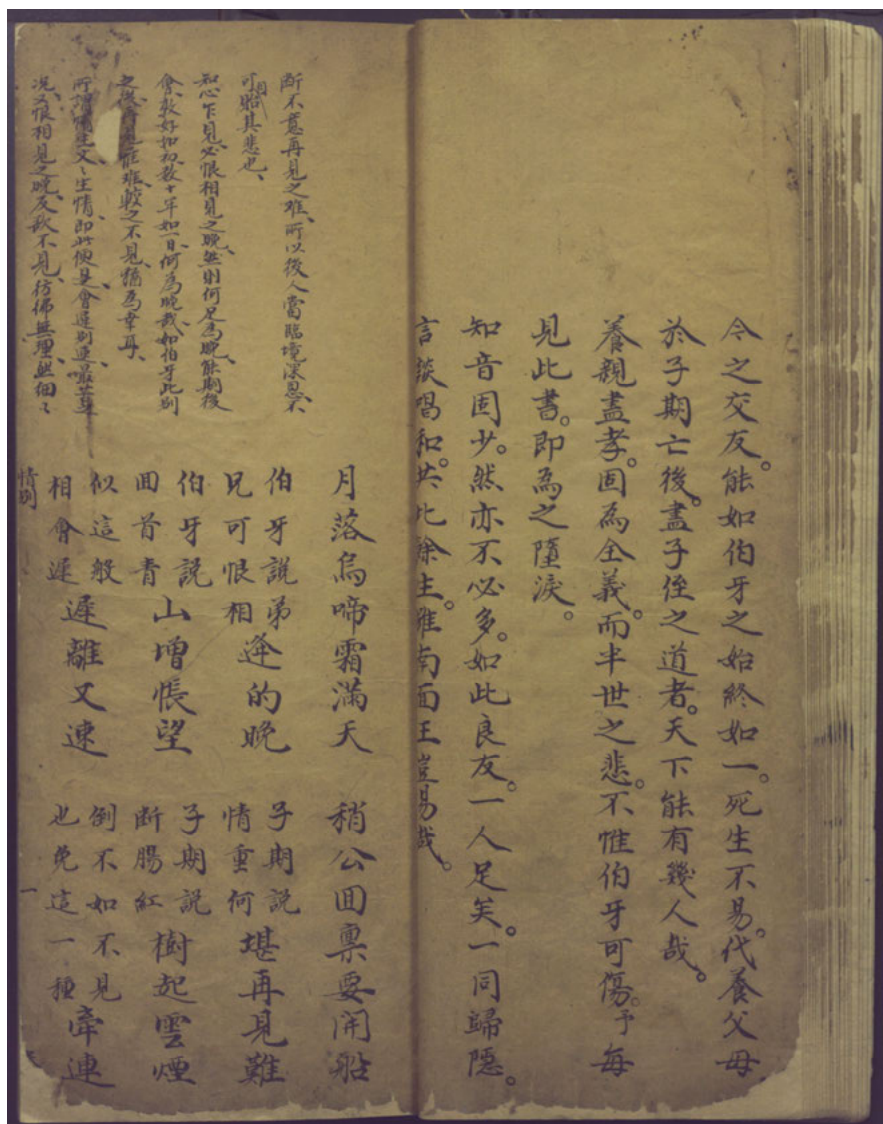 今之交友。能如伯牙之始終如一。死生不易。代養父母
於子期亡後。盡子侄之道者。天下能有幾人哉。
養親盡孝。固為全義。而半世之悲。不惟伯牙可傷。予每
見此書。即為之墮淚。
知音固少。然亦不必多。如此良友。一人足矣。一同歸隱。
言談唱和。共此餘生。雖南面王豈易哉。
斷不意再見之难、所以後人當臨境深思、不
可自貽其悲也、
知心乍見、必恨相見之晚、無則何足為晚、能期後
會、敦好如初、数十年如一日、何為晚哉、如伯牙此別
之後、再見誰難、較之不見、猶為幸耳、
所謂情生文、文生情、即此便是、會遲別速、最苦
況又恨相見之晚、反歎不見、彷彿無理、然細々
月落烏啼霜滿天 稍公回禀要開船
伯牙說弟兄可恨相逢的晚 子期說情重何堪再見難
伯牙說回首青山增悵望 子期說断腸紅樹起雲煙
似這般相會遲遲離又速 倒不如不見也免這一種牽連
情別 一